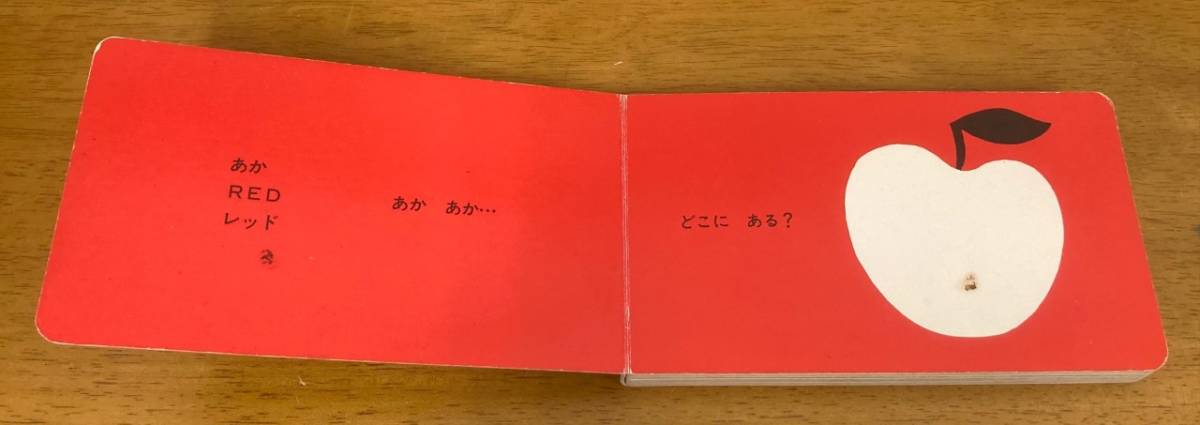 あか
RED
レッド
あか　あか…
どこに　ある？